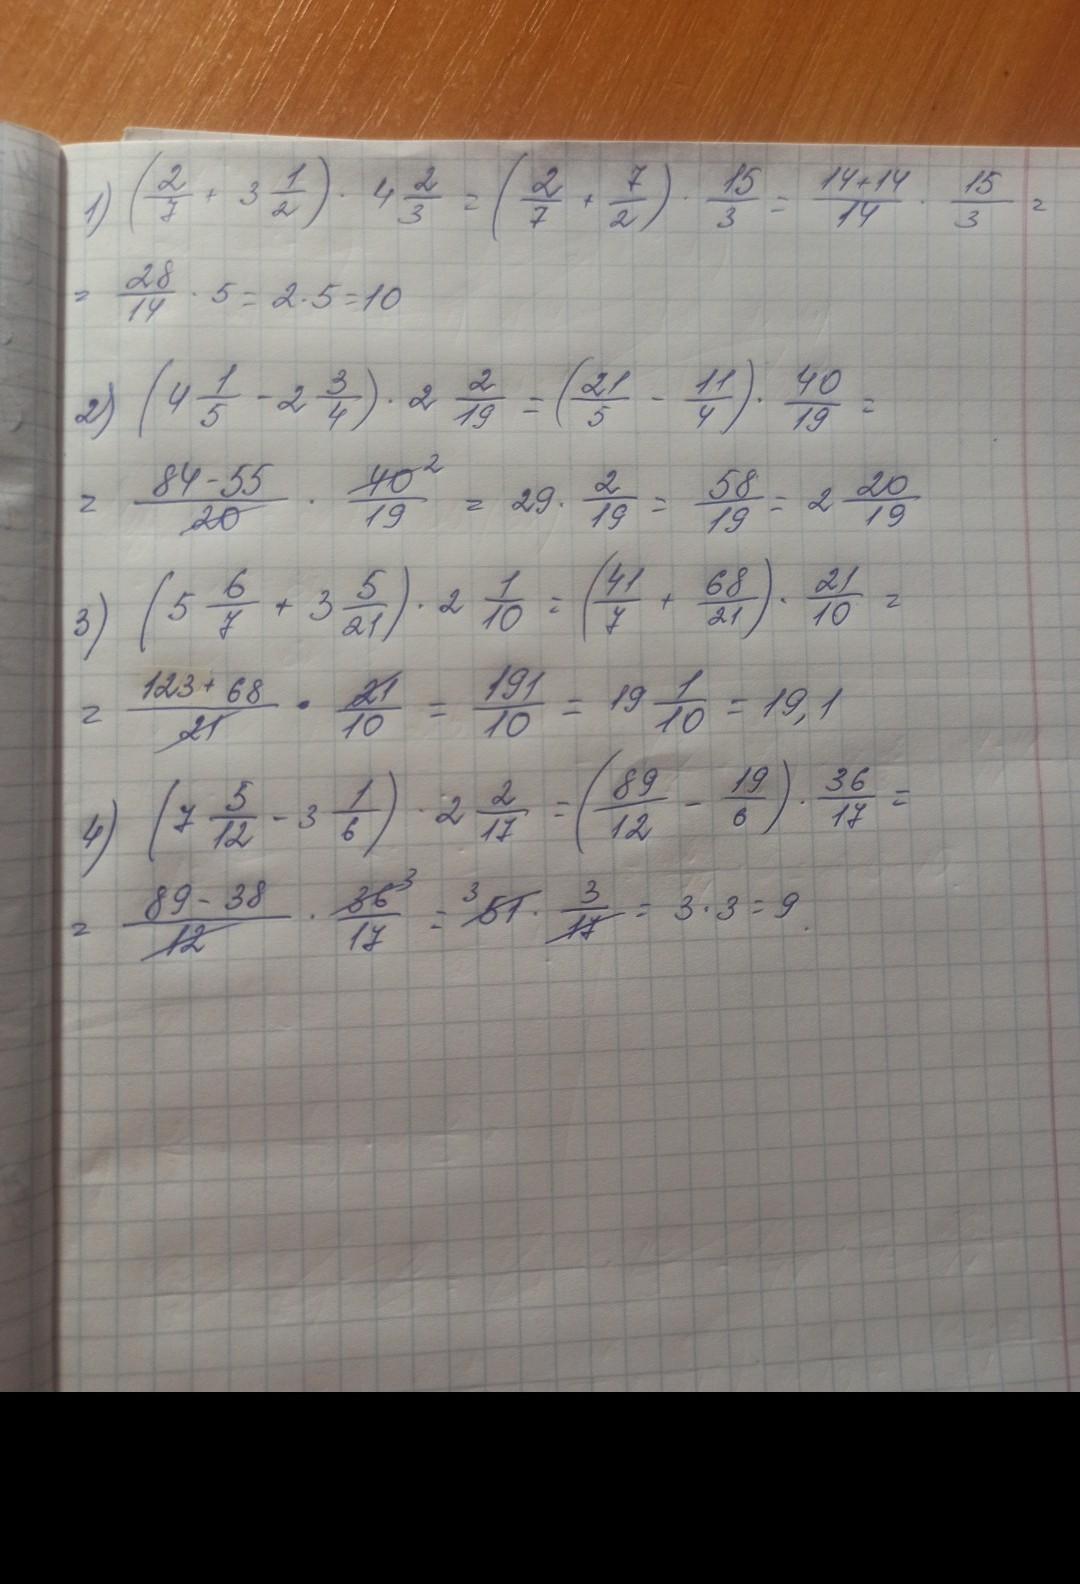 1) (2/7 + 3 1/2) · 4 2/3 = (2/7 + 7/2) · 15/3 = 14+14/14 · 15/3 =
= 28/14 · 5 = 2·5 = 10
2) (4 1/5 - 2 3/4) · 2 2/19 = (21/5 - 11/4) · 40/19 =
= 84-55/20 · 40²/19 = 29 · 2/19 = 58/19 = 2 20/19
3) (5 6/7 + 3 5/21) · 2 1/10 = (41/7 + 68/21) · 21/10 =
= 123+68/21 · 21/10 = 191/10 = 19 1/10 = 19,1
4) (7 5/12 - 3 1/6) · 2 2/17 = (89/12 - 19/6) · 36/17 =
= 89-38/12 · 36³/17 = ³51 · 3/17 = 3·3 = 9